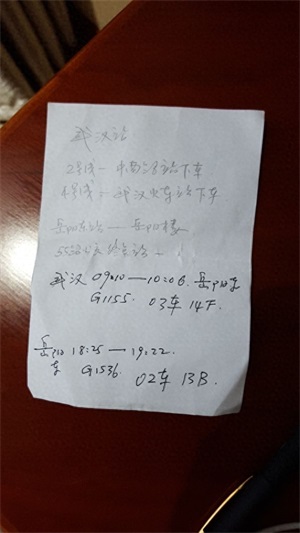 武汉站
2号线— 中南路站下车
4号线— 武汉火车站下车
岳阳东站 — 岳阳楼
55路 终点站
武汉 09:10 — 10:06. 岳阳东
G1155. 03车 14F.
岳阳东 18:25 — 19:22.
G1536. 02车 13B.